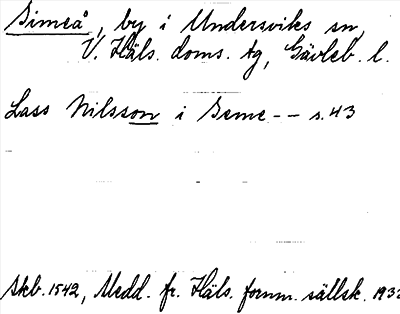 Simeå, by i Undersviks sn,
V. Häls. doms. tg, Gävleb. l.
Lass Nilsson i Seme -- s. 43
Skb. 1542, Medd. fr. Häls. fornm. sällsk. 193